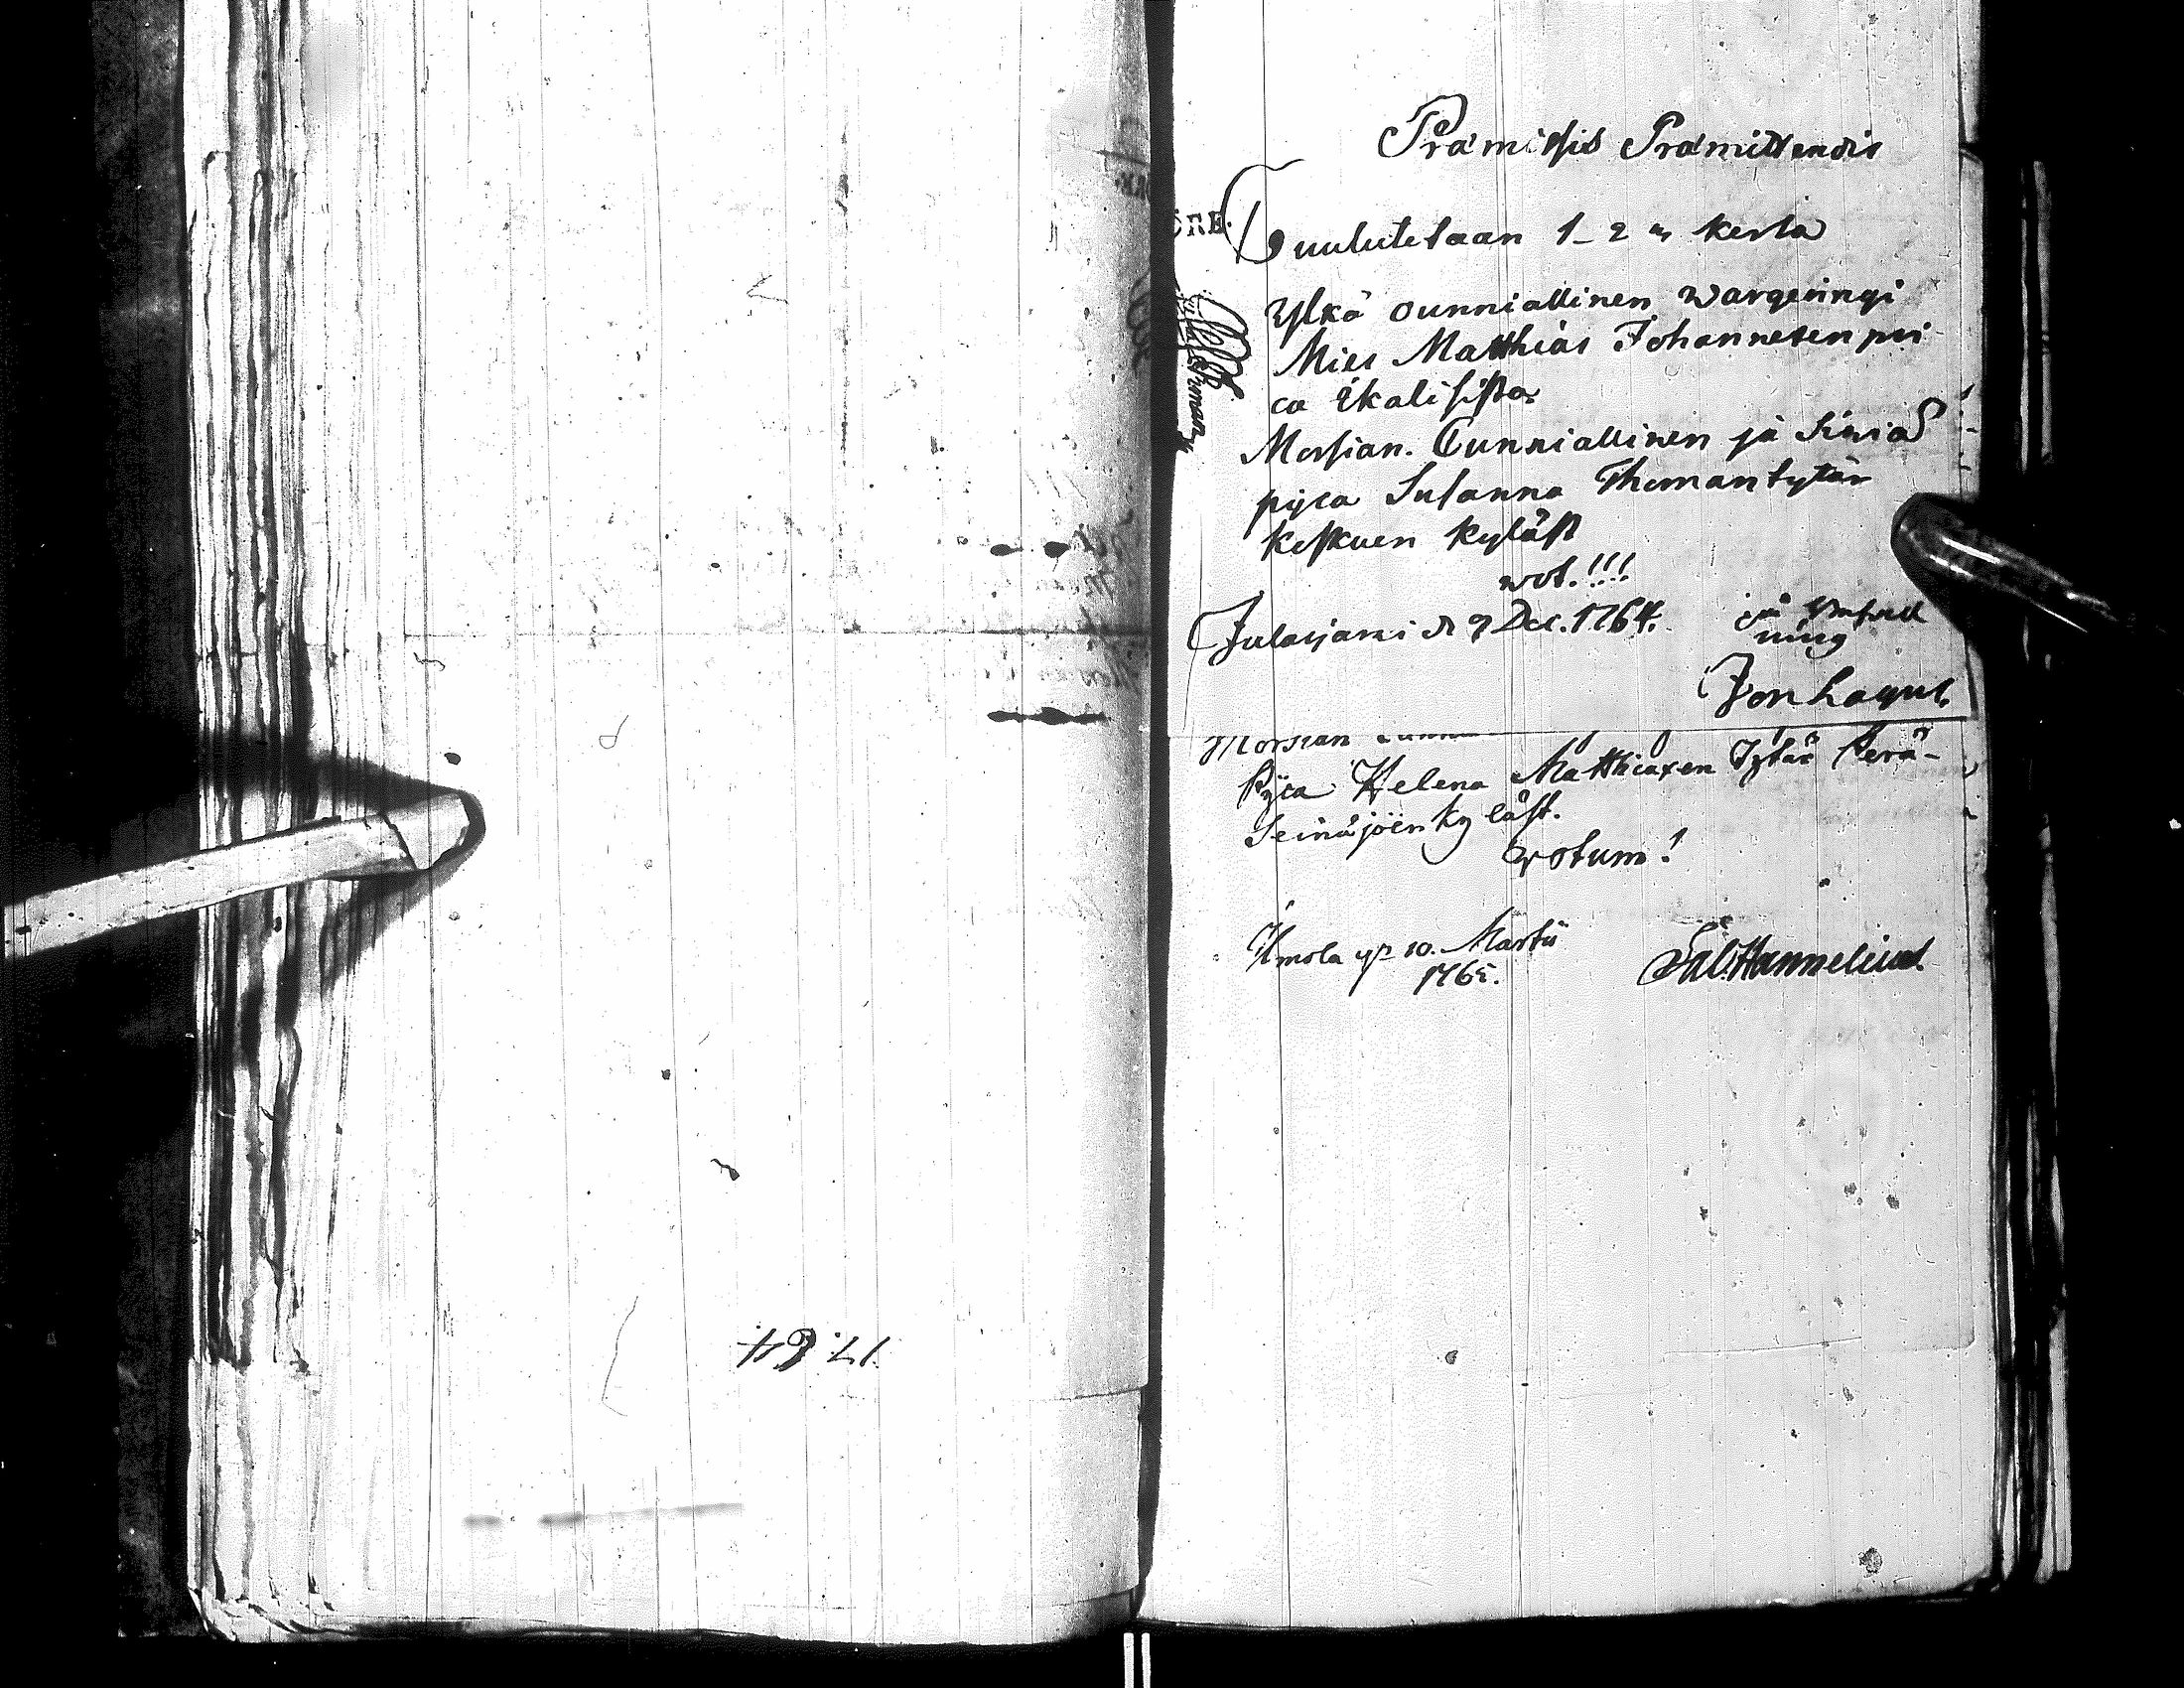 Præmissis Præmittendis
Cuulutetaan 1-2 kerta
Ylkä Cunniallinen wargeringi
Mies Matthias Johannesen poi-
ca Ikalisista.
Morsian. Cunniallinen ja Siwiä
pijca Susanna Thomantytär
Keskuen Kyläst
wot.!!!
Julasjarwi d 9 Dec. 1764.
Jon Lagus.
Morsian
Pijca Helena Matthiaxen Tytär Perä-
Seinäjoen Kyläst.
Votum!
Ilmola 10. Martii
1765.
Sal. Hannelius.
17.64.